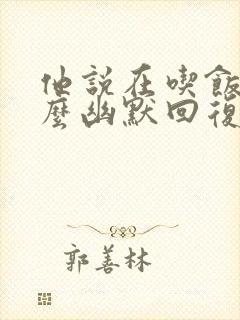 他説在喫飯
麽幽默回復
郭善林